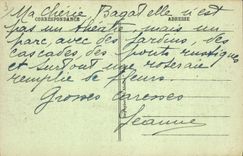 Ma Chérie Bagatelle n'est
CORRESPONDANCE
ADRESSE
pas un théâtre, mais un
parc, avec des jardins, des
cascades, des ponts rustiques
et surtout une roseraie
remplie de fleurs.
Grosses caresses
Jeanne